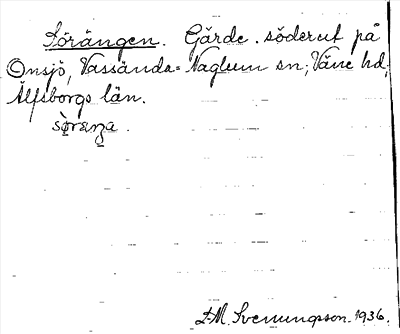 Sörängen. Gärde. söderut på
Onsjö, Vassända-Naglum sn; Väne hd,
Älfsborgs län.
sö̀raŋa.
D.M. Svenungsson. 1936.